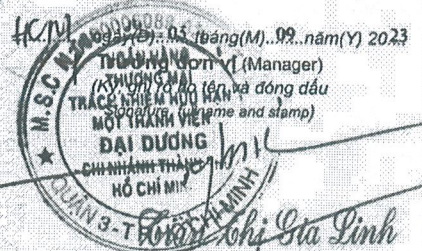 HCM, ngày(D). 05 tháng(M)..09..năm(Y) 2023
Trưởng đơn vị (Manager)
(Ký, ghi rõ họ tên và đóng dấu
name and stamp)
M.S.C
THƯƠNG MẠI
TRÁCH NHIỆM HỮU HẠN
MỘT THÀNH VIÊN
ĐẠI DƯƠNG
CHI NHÁNH THÀNH
HỒ CHÍ MIN
QUẬN 3 - T HỒ CHÍ MINH
Chi Gia Linh